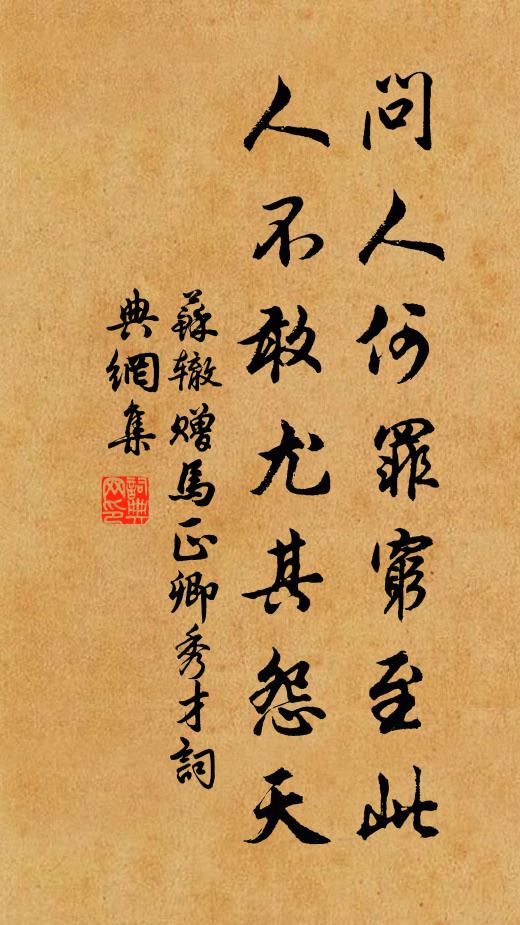 問人何罪窮至此
人不敢尤其怨天
蘇辙赠馬正卿秀才詞
典網集
詞典网印